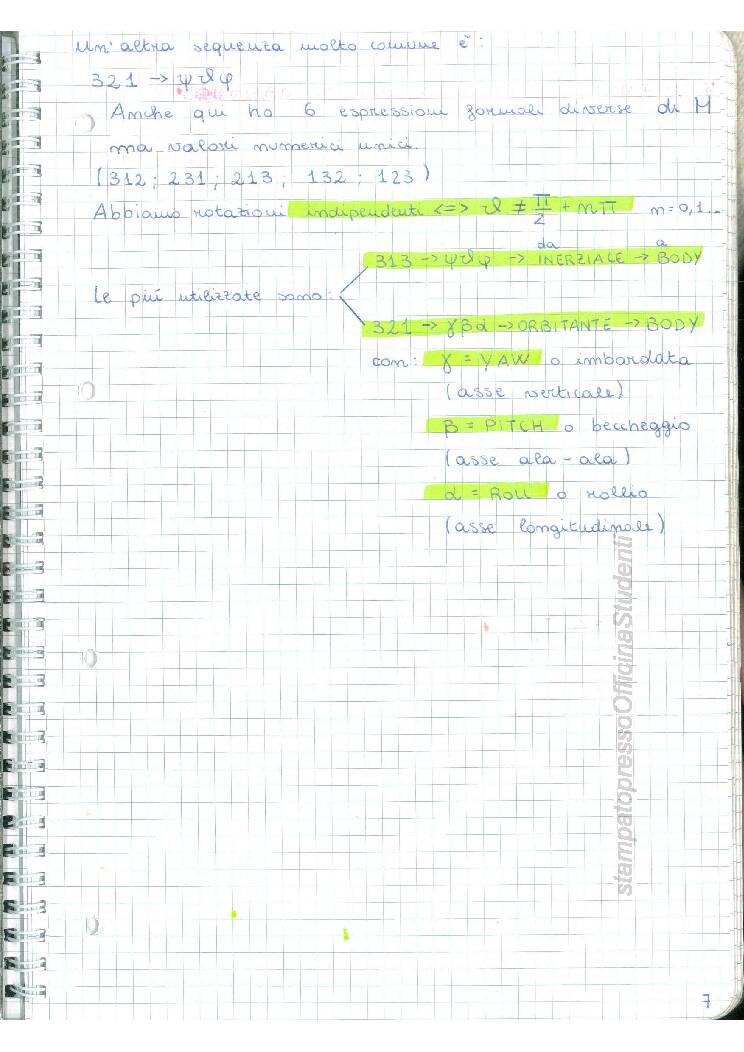 Un'altra sequenza molto comune è:
321 → ψϑφ
Anche qui ho 6 espressioni formali diverse di M
ma valori numerici unici.
(312; 231; 213; 132; 123)
Abbiamo rotazioni indipendenti <=> ϑ ≠ π/2 + nπ n=0,1...
da a
313 → ψϑφ → INERZIALE → BODY
Le più utilizzate sono:
321 → γβα → ORBITANTE → BODY
con: γ = YAW o imbardata
(asse verticale)
β = PITCH o beccheggio
(asse ala-ala)
α = ROLL o rollio
(asse longitudinale)
stampatopressoOfficinaStudenti
7